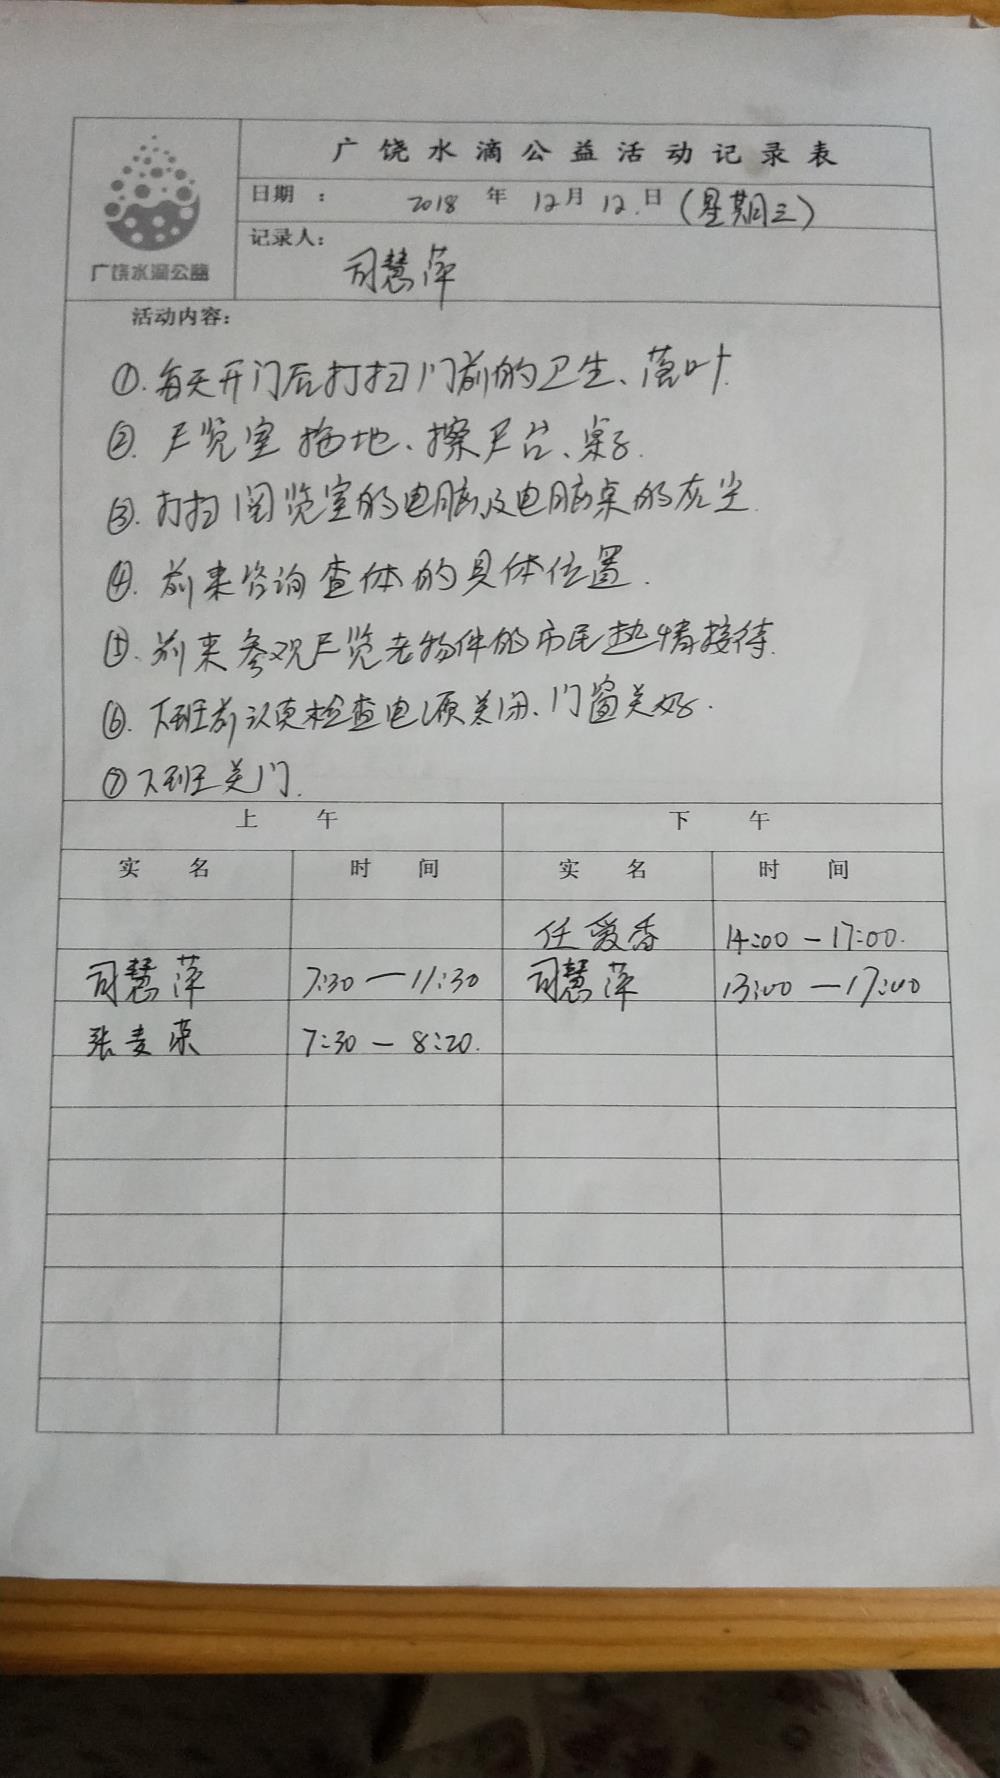 广饶水滴公益活动记录表
广饶水滴公益
日期 : 2018 年 12月 12.日 (星期三)
记录人: 司慧萍
活动内容:
①. 每天开门后打扫门前的卫生、落叶.
②. 尸览室拖地、擦尸台、桌子.
③. 打扫阅览室的电脑及电脑桌的灰尘.
④. 前来咨询查体的具体位置.
⑤. 前来参观尸览老物件的市民热情接待.
⑥. 下班前认真检查电源关闭、门窗关好.
⑦ 下班关门.
上 午 下 午
实 名 时 间 实 名 时 间
任爱香 14:00 — 17:00.
司慧萍 7:30 — 11:30 司慧萍 13:00 — 17:00
张麦荣 7:30 — 8:20.